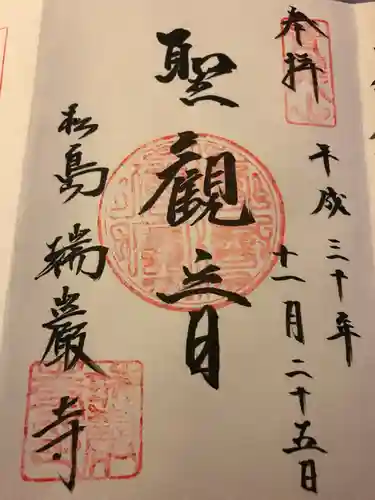 奉拝
平成三十年
十一月二十五日
聖観音
松島瑞巖寺